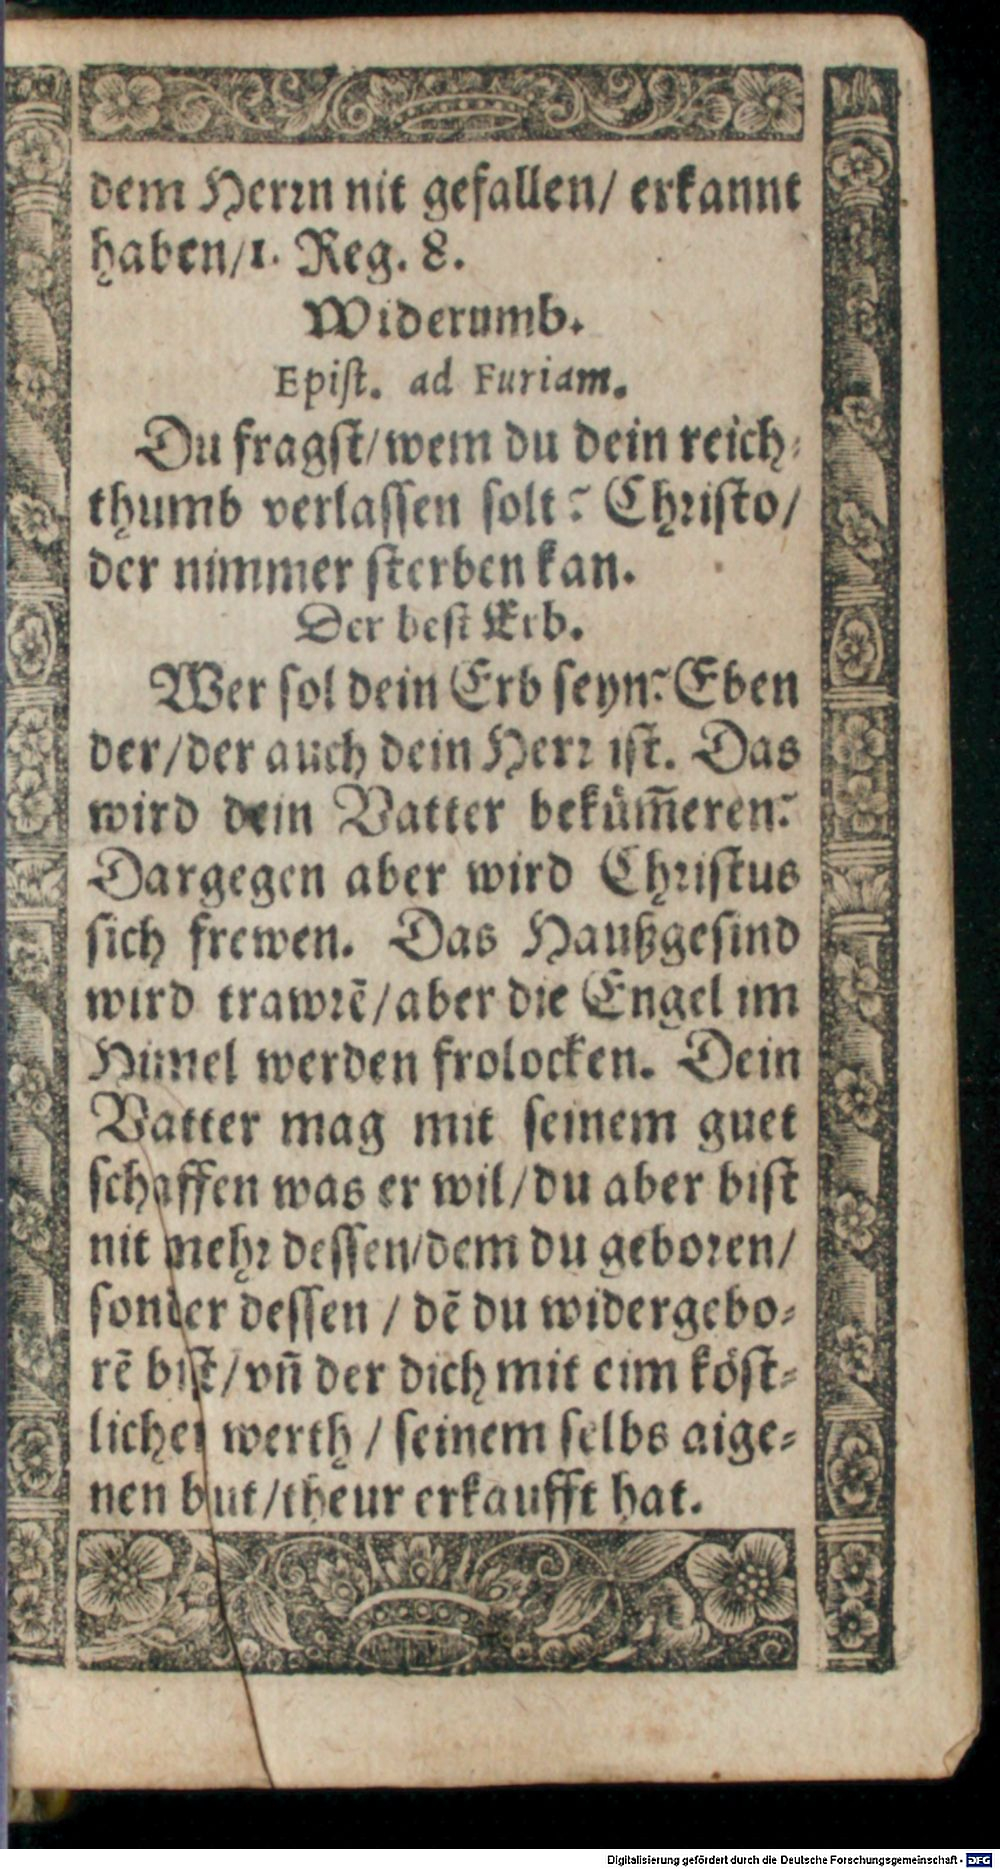 dem Herrn nit gefallen/ erkannt
haben/1. Reg. 8.
Widerumb.
Epist. ad Furiam.
Du fragst/wem du dein reich-
thumb verlassen solt? Christo/
der nimmer sterben kan.
Der best Erb.
Wer sol dein Erb seyn? Eben
der/der auch dein Herr ist. Das
wird dein Vatter bekům̃eren?
Dargegen aber wird Christus
sich frewen. Das Haußgesind
wird trawrẽ/aber die Engel im
Himel werden frolocken. Dein
Vatter mag mit seinem guet
schaffen was er wil/du aber bist
nit mehr dessen/dem du geboren/
sonder dessen / dẽ du widergebo-
rẽ bist/vñ der dich mit eim köst-
lichen werth / seinem selbs aige-
nen blut/theur erkaufft hat.
Digitalisierung gefördert durch die Deutsche Forschungsgemeinschaft - DFG